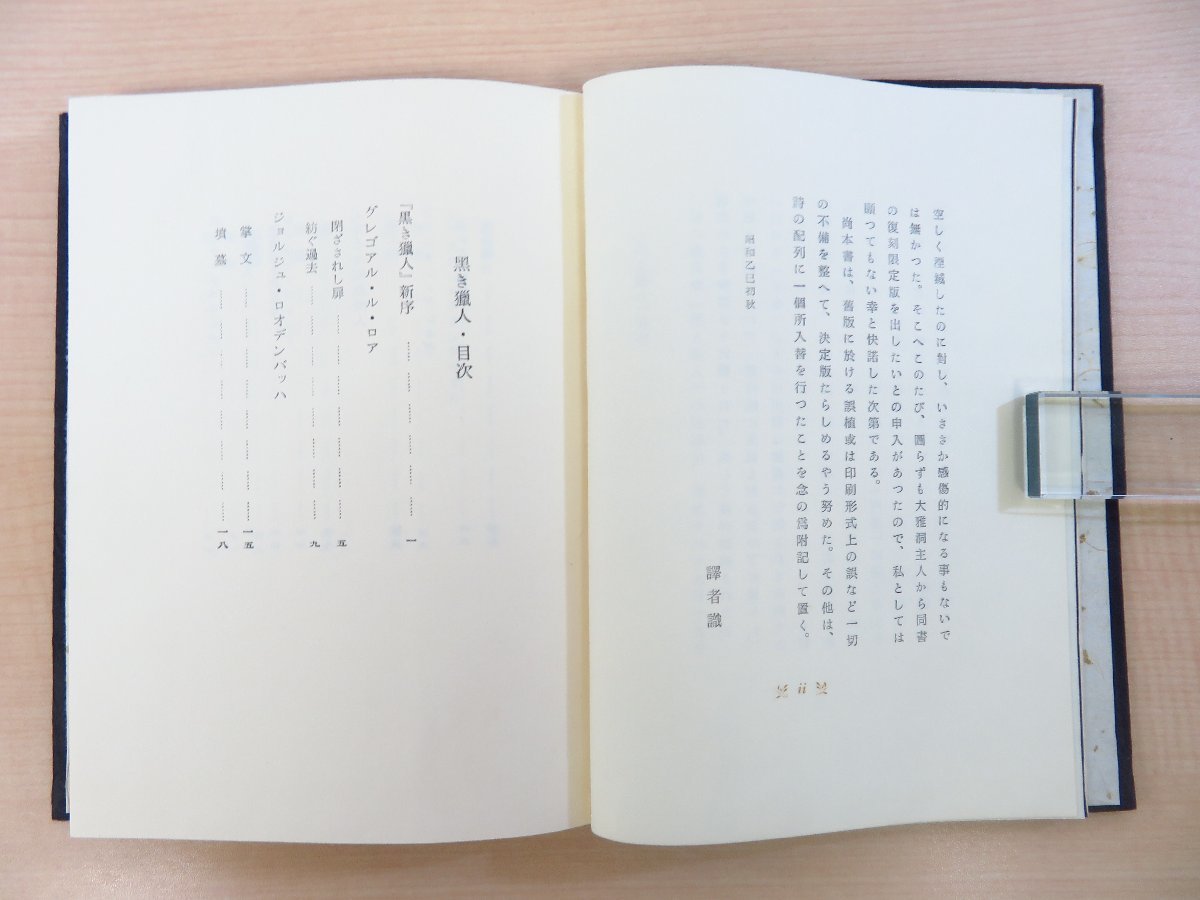 空しく堙滅したのに對し、いささか感傷的になる事もないで
は無かつた。そこへこのたび、圖らずも大雅洞主人から同書
の復刻限定版を出したいとの申入があつたので、私としては
願つてもない幸と快諾した次第である。
尚本書は、舊版に於ける誤植或は印刷形式上の誤など一切
の不備を整へて、決定版たらしめるやう努めた。その他は、
詩の配列に一個所入替を行つたことを念の爲附記して置く。
昭和乙巳初秋
譯者識
ii
黑き獵人・目次
『黑き獵人』新序 …… 一
グレゴアル・ル・ロア
閉ざされし扉 …… 五
紡ぐ過去 …… 九
ジョルジュ・ロオデンバッハ
掌文 …… 一五
墳墓 …… 一八